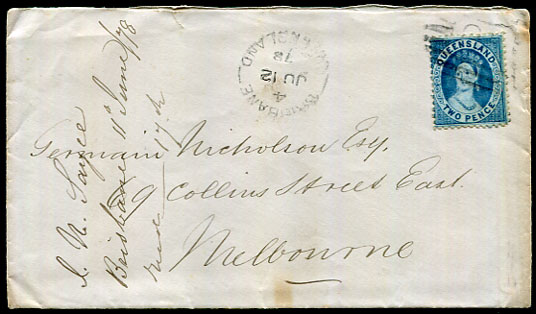 QUEENSLAND
TWO PENCE
BRISBANE
QUEENSLAND
4
JU 12
78
Germain Nicholson Esq.
9 Collins Street East.
Melbourne
Brisbane 11th June/78